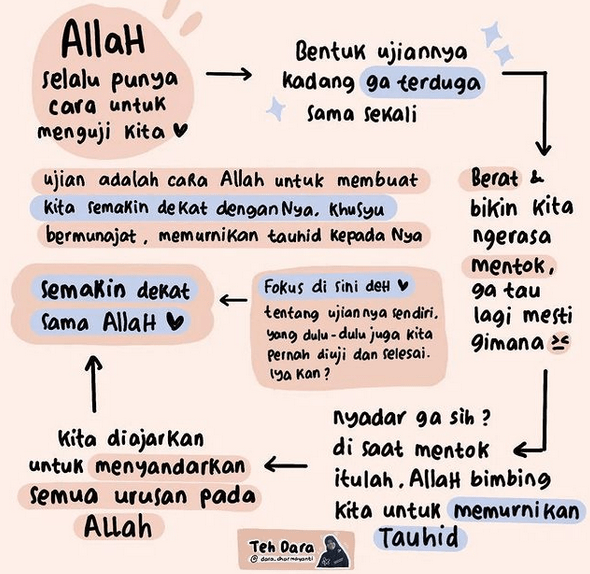 Allah
selalu punya
cara untuk
menguji kita
Bentuk ujiannya
kadang ga terduga
sama sekali
Berat &
bikin kita
ngerasa
mentok,
ga tau
lagi mesti
gimana
ujian adalah cara Allah untuk membuat
kita semakin dekat denganNya. Khusyu
bermunajat, memurnikan tauhid kepada Nya
Fokus di sini deh
tentang ujiannya sendiri,
yang dulu-dulu juga kita
pernah diuji dan selesai.
Iya kan?
semakin dekat
sama Allah
nyadar ga sih?
di saat mentok
itulah, Allah bimbing
kita untuk memurnikan
Tauhid
kita diajarkan
untuk menyandarkan
semua urusan pada
Allah
Teh Dara
@dara.dharmayanti